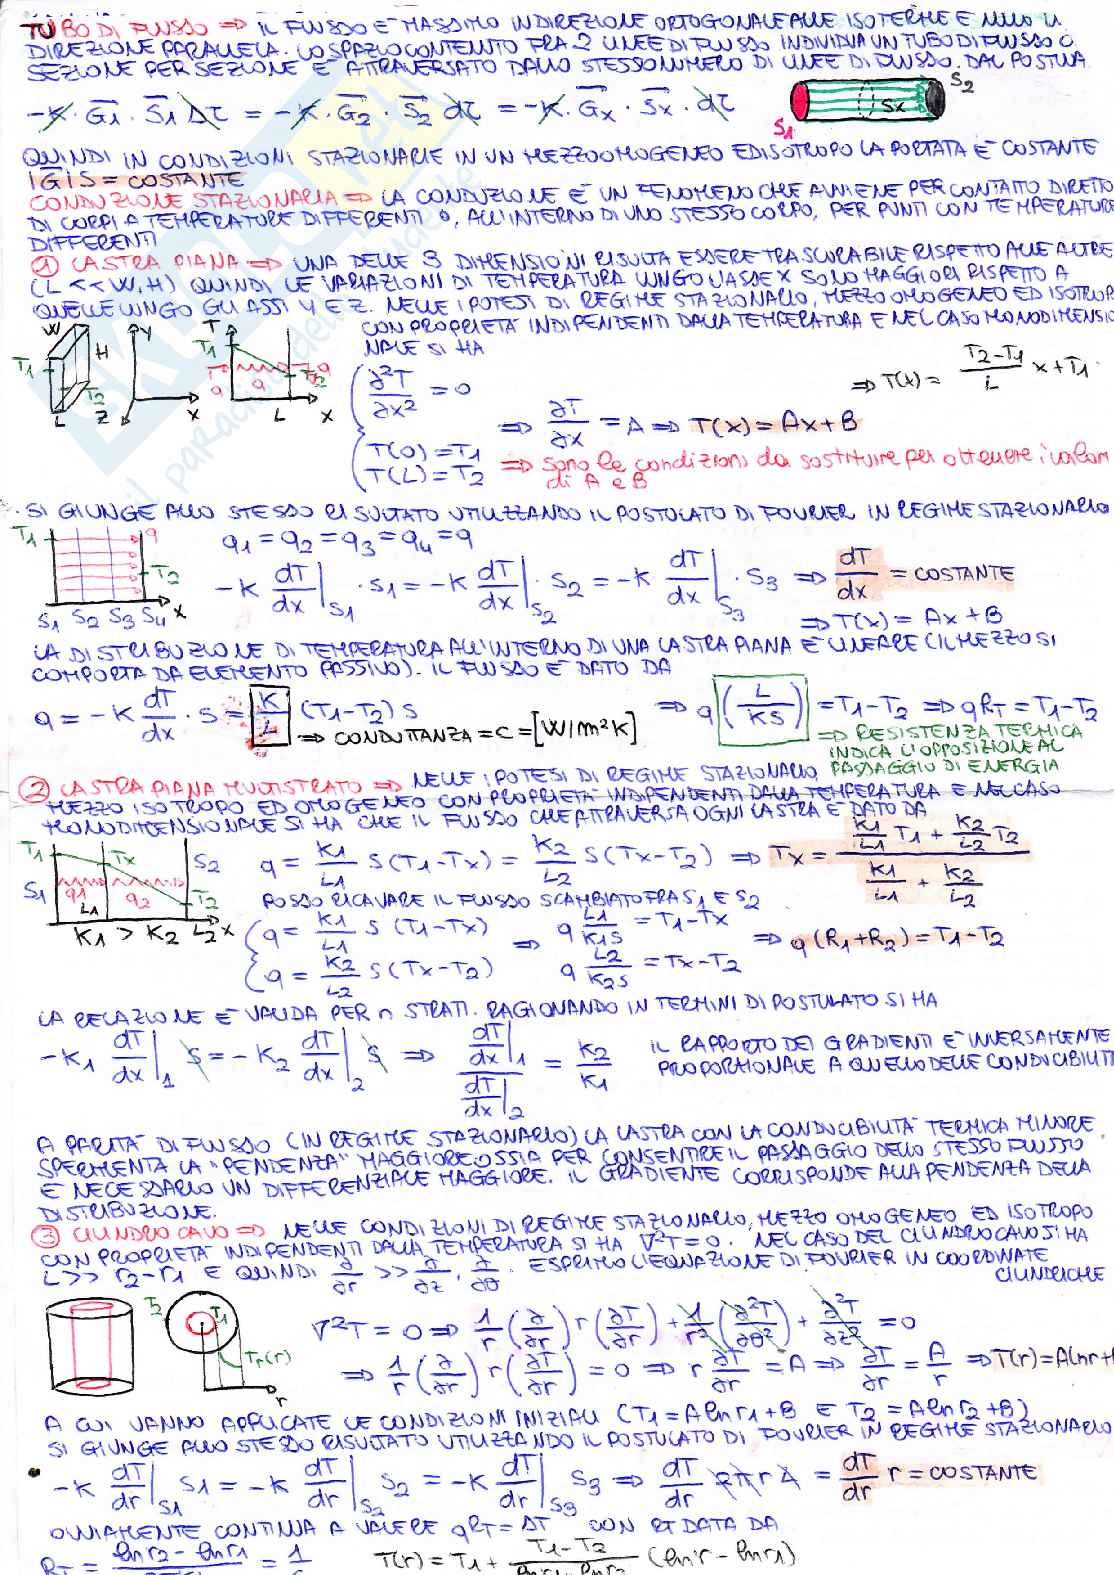 TUBO DI FLUSSO => IL FLUSSO E' MASSIMO IN DIREZIONE ORTOGONALE ALLE ISOTERME E NULLO IN
DIREZIONE PARALLELA. LO SPAZIO CONTENUTO FRA 2 LINEE DI FLUSSO INDIVIDUA UN TUBO DI FLUSSO O
SEZIONE PER SEZIONE E' ATTRAVERSATO DALLO STESSO NUMERO DI LINEE DI FLUSSO. DAL POSTULA
-K·G1·S1 Δτ = -K·G2·S2 dτ = -K·Gx·Sx·dτ
S1 Sx S2
QUINDI IN CONDIZIONI STAZIONARIE IN UN MEZZO OMOGENEO ED ISOTROPO LA PORTATA E' COSTANTE
|G|S = COSTANTE
CONDUZIONE STAZIONARIA => LA CONDUZIONE E' UN FENOMENO CHE AVVIENE PER CONTATTO DIRETTO
DI CORPI A TEMPERATURE DIFFERENTI O, ALL'INTERNO DI UNO STESSO CORPO, PER PUNTI CON TEMPERATURE
DIFFERENTI
① LASTRA PIANA => UNA DELLE 3 DIMENSIONI RISULTA ESSERE TRASCURABILE RISPETTO ALLE ALTRE
(L<<W,H) QUINDI LE VARIAZIONI DI TEMPERATURA LUNGO L'ASSE X SONO MAGGIORI RISPETTO A
QUELLE LUNGO GLI ASSI Y E Z. NELLE IPOTESI DI REGIME STAZIONARIO, MEZZO OMOGENEO ED ISOTROP
CON PROPRIETA' INDIPENDENTI DALLA TEMPERATURA E NEL CASO MONODIMENSIO
NALE SI HA
W H T1 T2 L Z Y X T T1 q q q T2 L X
∂²T/∂x² = 0
T(0)=T1
T(L)=T2
=> ∂T/∂x = A => T(x) = Ax+B
=> T(x) = (T2-T1)/L x + T1
=> sono le condizioni da sostituire per ottenere i valori
di A e B
SI GIUNGE ALLO STESSO RISULTATO UTILIZZANDO IL POSTULATO DI FOURIER IN REGIME STAZIONARIO
T1 q T2 S1 S2 S3 S4 X
q1 = q2 = q3 = q4 = q
-K dT/dx|S1 · S1 = -K dT/dx|S2 · S2 = -K dT/dx|S3 · S3 => dT/dx = COSTANTE
=> T(x) = Ax+B
LA DISTRIBUZIONE DI TEMPERATURA ALL'INTERNO DI UNA LASTRA PIANA E' LINEARE (IL MEZZO SI
COMPORTA DA ELEMENTO PASSIVO). IL FLUSSO E' DATO DA
q = -K dT/dx · S = K/L (T1-T2) S => q (L/KS) = T1-T2 => qRT = T1-T2
=> CONDUTTANZA = C = [W/m²K]
=> RESISTENZA TERMICA
INDICA L'OPPOSIZIONE AL
PASSAGGIO DI ENERGIA
② LASTRA PIANA MULTISTRATO => NELLE IPOTESI DI REGIME STAZIONARIO,
MEZZO ISOTROPO ED OMOGENEO CON PROPRIETA' INDIPENDENTI DALLA TEMPERATURA E NEL CASO
MONODIMENSIONALE SI HA CHE IL FLUSSO CHE ATTRAVERSA OGNI LASTRA E' DATO DA
T1 Tx S2 S1 q1 q2 T2 L1 L2 X
K1 > K2
q = K1/L1 S(T1-Tx) = K2/L2 S(Tx-T2) => Tx = (K1/L1 T1 + K2/L2 T2)/(K1/L1 + K2/L2)
POSSO RICAVARE IL FLUSSO SCAMBIATO FRA S1 E S2
q = K1/L1 S (T1-Tx)
q = K2/L2 S (Tx-T2)
=> q L1/K1S = T1-Tx
q L2/K2S = Tx-T2
=> q(R1+R2) = T1-T2
LA RELAZIONE E' VALIDA PER n STRATI. RAGIONANDO IN TERMINI DI POSTULATO SI HA
-K1 dT/dx|1 S = -K2 dT/dx|2 S => (dT/dx|1)/(dT/dx|2) = K2/K1
IL RAPPORTO DEI GRADIENTI E' INVERSAMENTE
PROPORZIONALE A QUELLO DELLE CONDUCIBILITA
A PARITA' DI FLUSSO (IN REGIME STAZIONARIO) LA LASTRA CON LA CONDUCIBILITA' TERMICA MINORE
SPERIMENTA LA "PENDENZA" MAGGIORE OSSIA PER CONSENTIRE IL PASSAGGIO DELLO STESSO FLUSSO
E' NECESSARIO UN DIFFERENZIALE MAGGIORE. IL GRADIENTE CORRISPONDE ALLA PENDENZA DELLA
DISTRIBUZIONE.
③ CILINDRO CAVO => NELLE CONDIZIONI DI REGIME STAZIONARIO, MEZZO OMOGENEO ED ISOTROPO
CON PROPRIETA' INDIPENDENTI DALLA TEMPERATURA SI HA ∇²T=0. NEL CASO DEL CILINDRO CAVO SI HA
L >> r2-r1 E QUINDI ∂/∂r >> ∂/∂z, ∂/∂θ. ESPRIMO L'EQUAZIONE DI FOURIER IN COORDINATE
CILINDRICHE
T2 T1 Tr(r) r
∇²T = 0 => 1/r (∂/∂r) r (∂T/∂r) + 1/r² (∂²T/∂θ²) + ∂²T/∂z² = 0
=> 1/r (∂/∂r) r (∂T/∂r) = 0 => r ∂T/∂r = A => ∂T/∂r = A/r => T(r)=Alnr+
A CUI VANNO APPLICATE LE CONDIZIONI INIZIALI (T1=Alnr1+B E T2=Alnr2+B)
SI GIUNGE ALLO STESSO RISULTATO UTILIZZANDO IL POSTULATO DI FOURIER IN REGIME STAZIONARIO
-K dT/dr|S1 S1 = -K dT/dr|S2 S2 = -K dT/dr|S3 S3 => dT/dr 2πr L = dT/dr r = COSTANTE
OVVIAMENTE CONTINUA A VALERE qRT=ΔT CON RT DATA DA
RT = lnr2-lnr1 = 1 T(r) = T1 + (T1-T2)/(lnr1-lnr2) (lnr-lnr1)